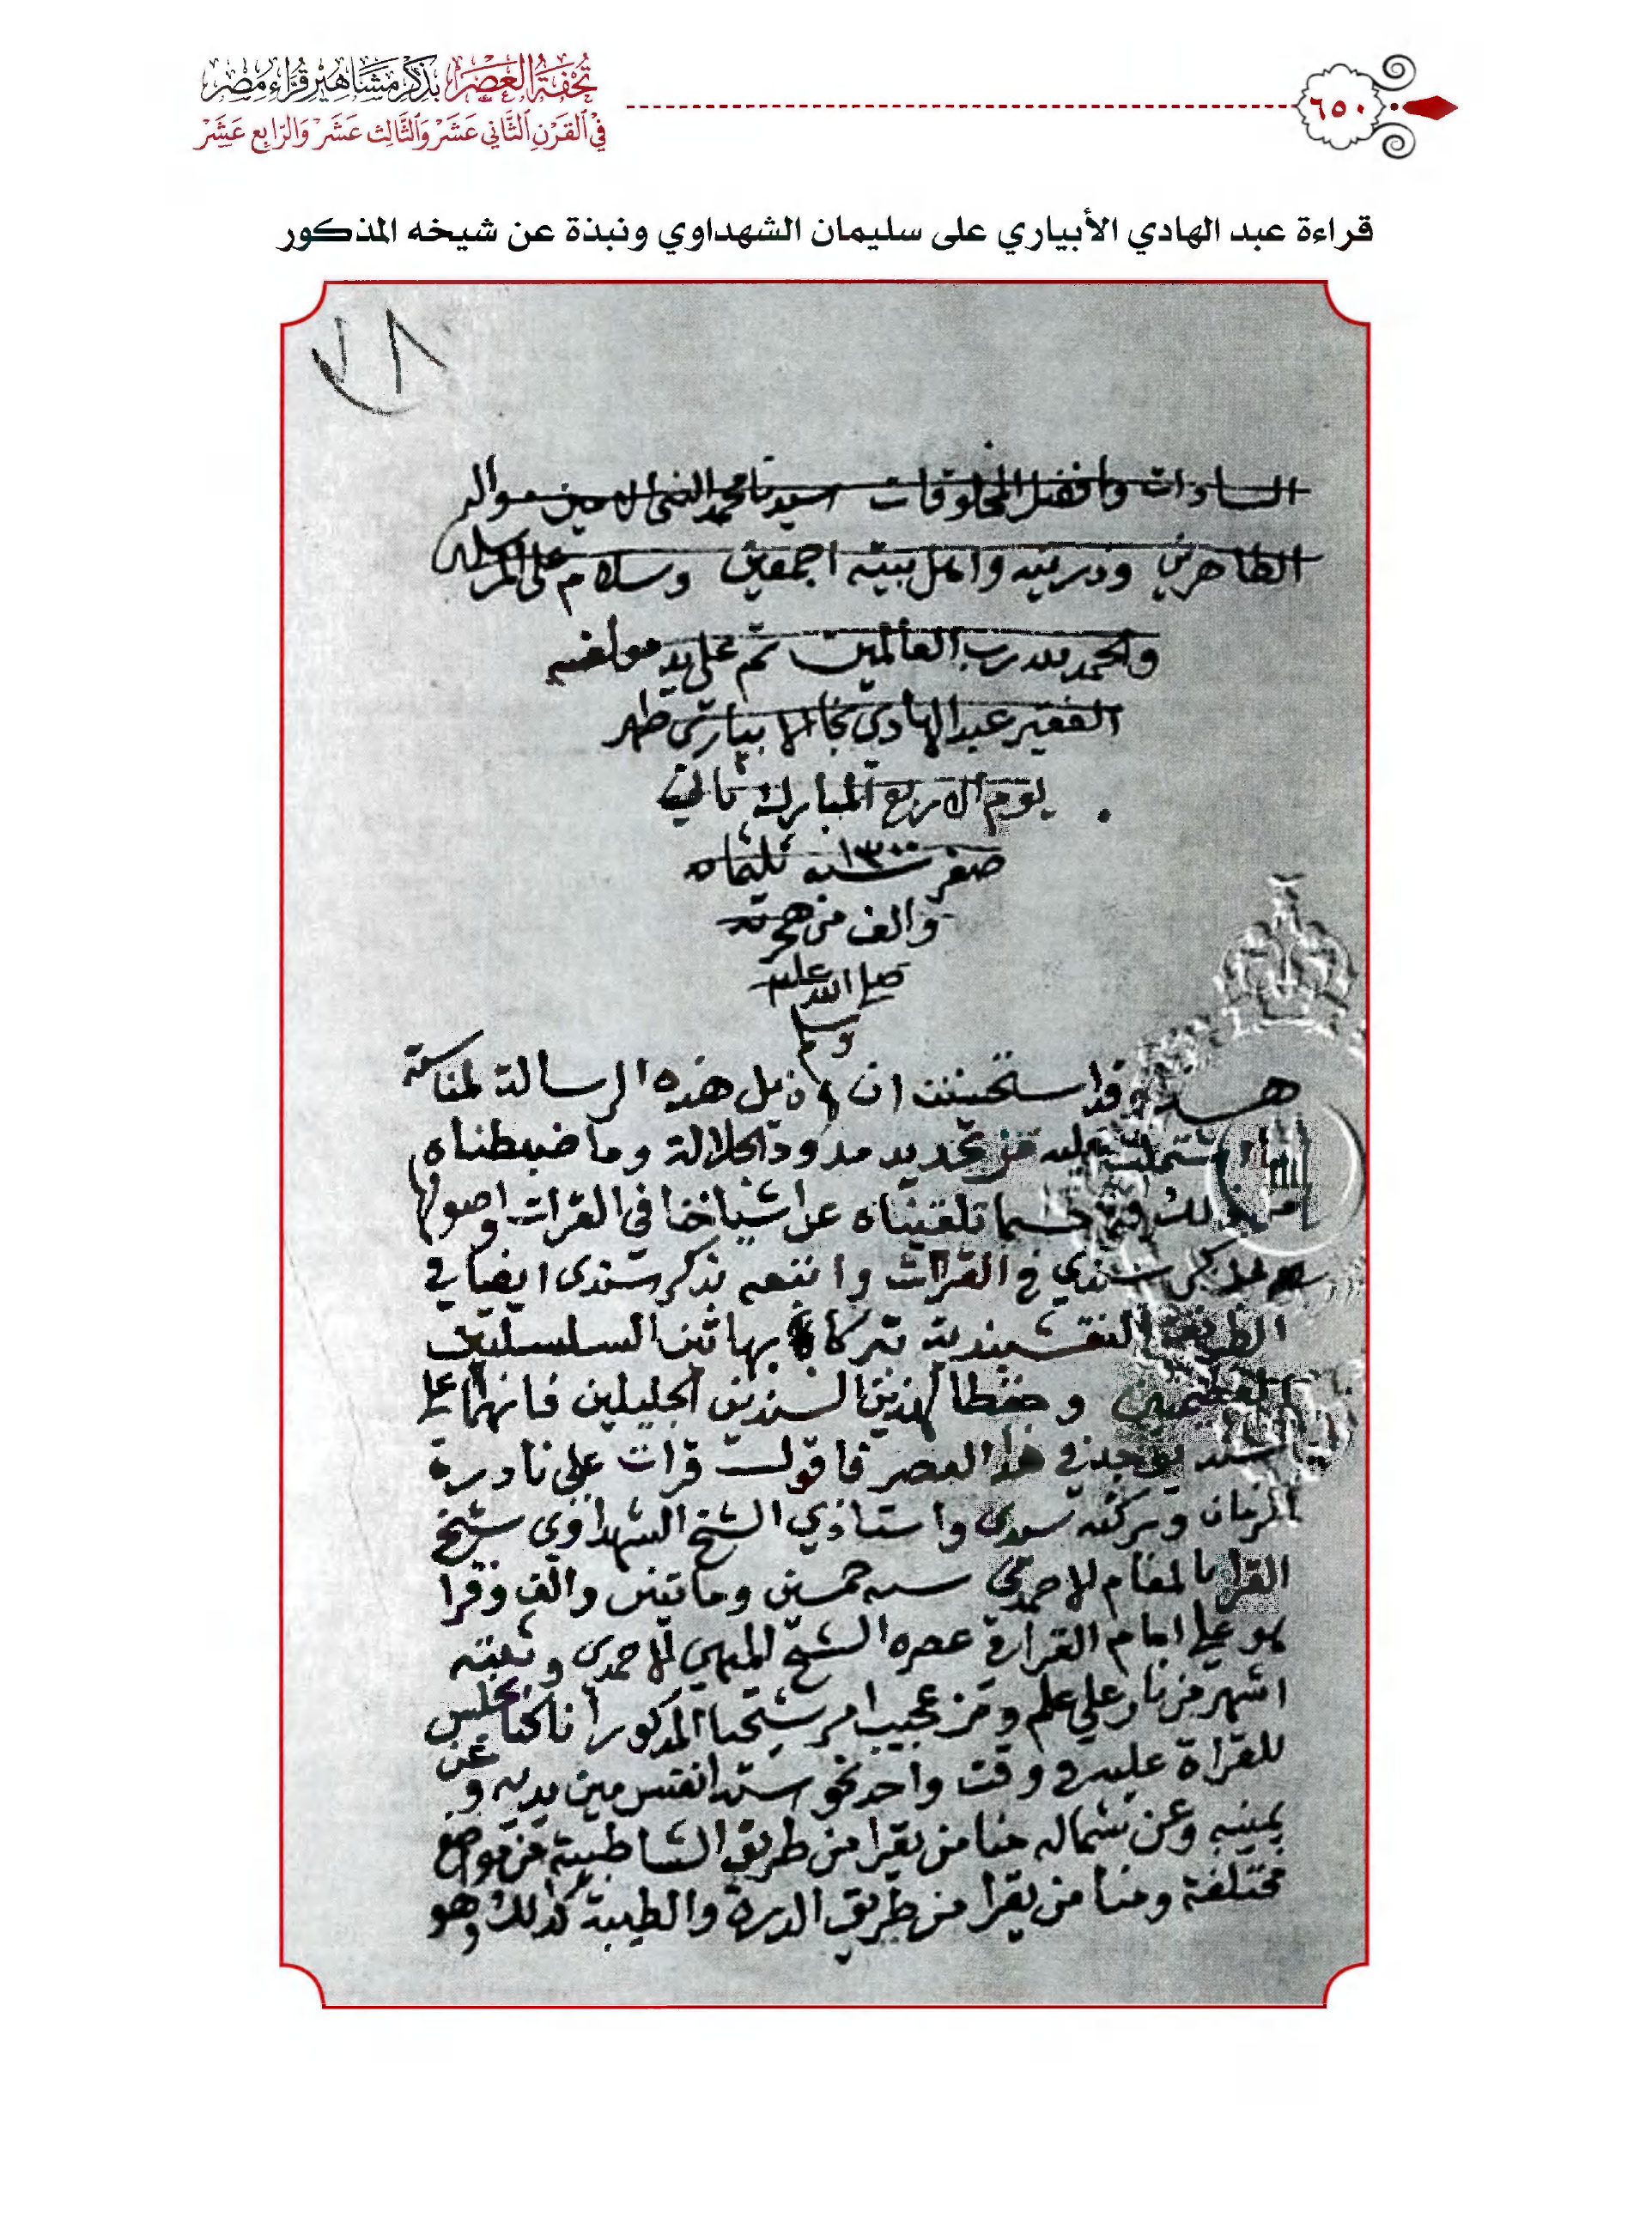 تحفة العصر بذكر مشاهير قراء مصر
في القرن الثاني عشر والثالث عشر والرابع عشر
٦٥٠
قراءة عبد الهادي الأبياري على سليمان الشهداوي ونبذة عن شيخه المذكور
٧٨
السادات وافضل المخلوقات سيدنا محمد النبي الامين واله
الطاهرين وذريته واهل بيته اجمعين وسلام على المرسلين
والحمد لله رب العالمين تم على يد مولفه
الفقير عبد الهادي نجا الابياري ظهر
يوم الاربع المبارك ثاني
صفر سنة ١٣٠٠ ثلثماه
والف من هجرته
صلى الله عليه
وسلم
هذا وقد استحسنت ان اذيل هذه الرسالة لمناسبة
ما اشتملت عليه من تحديد مدود الجلالة وما ضبطناه
من ذلك فيها حسبما تلقيناه عن اشياخنا في القرات واصولها
بذكر سندي في القرات واتبعه بذكر سندي ايضا في
الطريقة النقشبندية تبركا بهاتين السلسلتين
العظيمتين وحفظا لهذين السندين الجليلين فانهما اعلى
سند يوجد في هذا العصر فاقول قرات على نادرة
الزمان وبركته سيدي واستاذي الشيخ الشهداوي شيخ
القرا بالمقام الاحمدي سنه خمسين وماتين والف وقرا
هو على امام القرا في عصره الشيخ الميهي الاحمدي وثبته
اشهر من نار على علم ومن عجيب امر شيخنا المذكور انا كنا نجلس
للقراة عليه في وقت واحد نحو ستة انفس بين يديه وعن
يمينه وعن شماله منا من يقرا من طريق الشاطبية من مواضع
مختلفة ومنا من يقرا من طريق الدرة والطيبة كذلك وهو